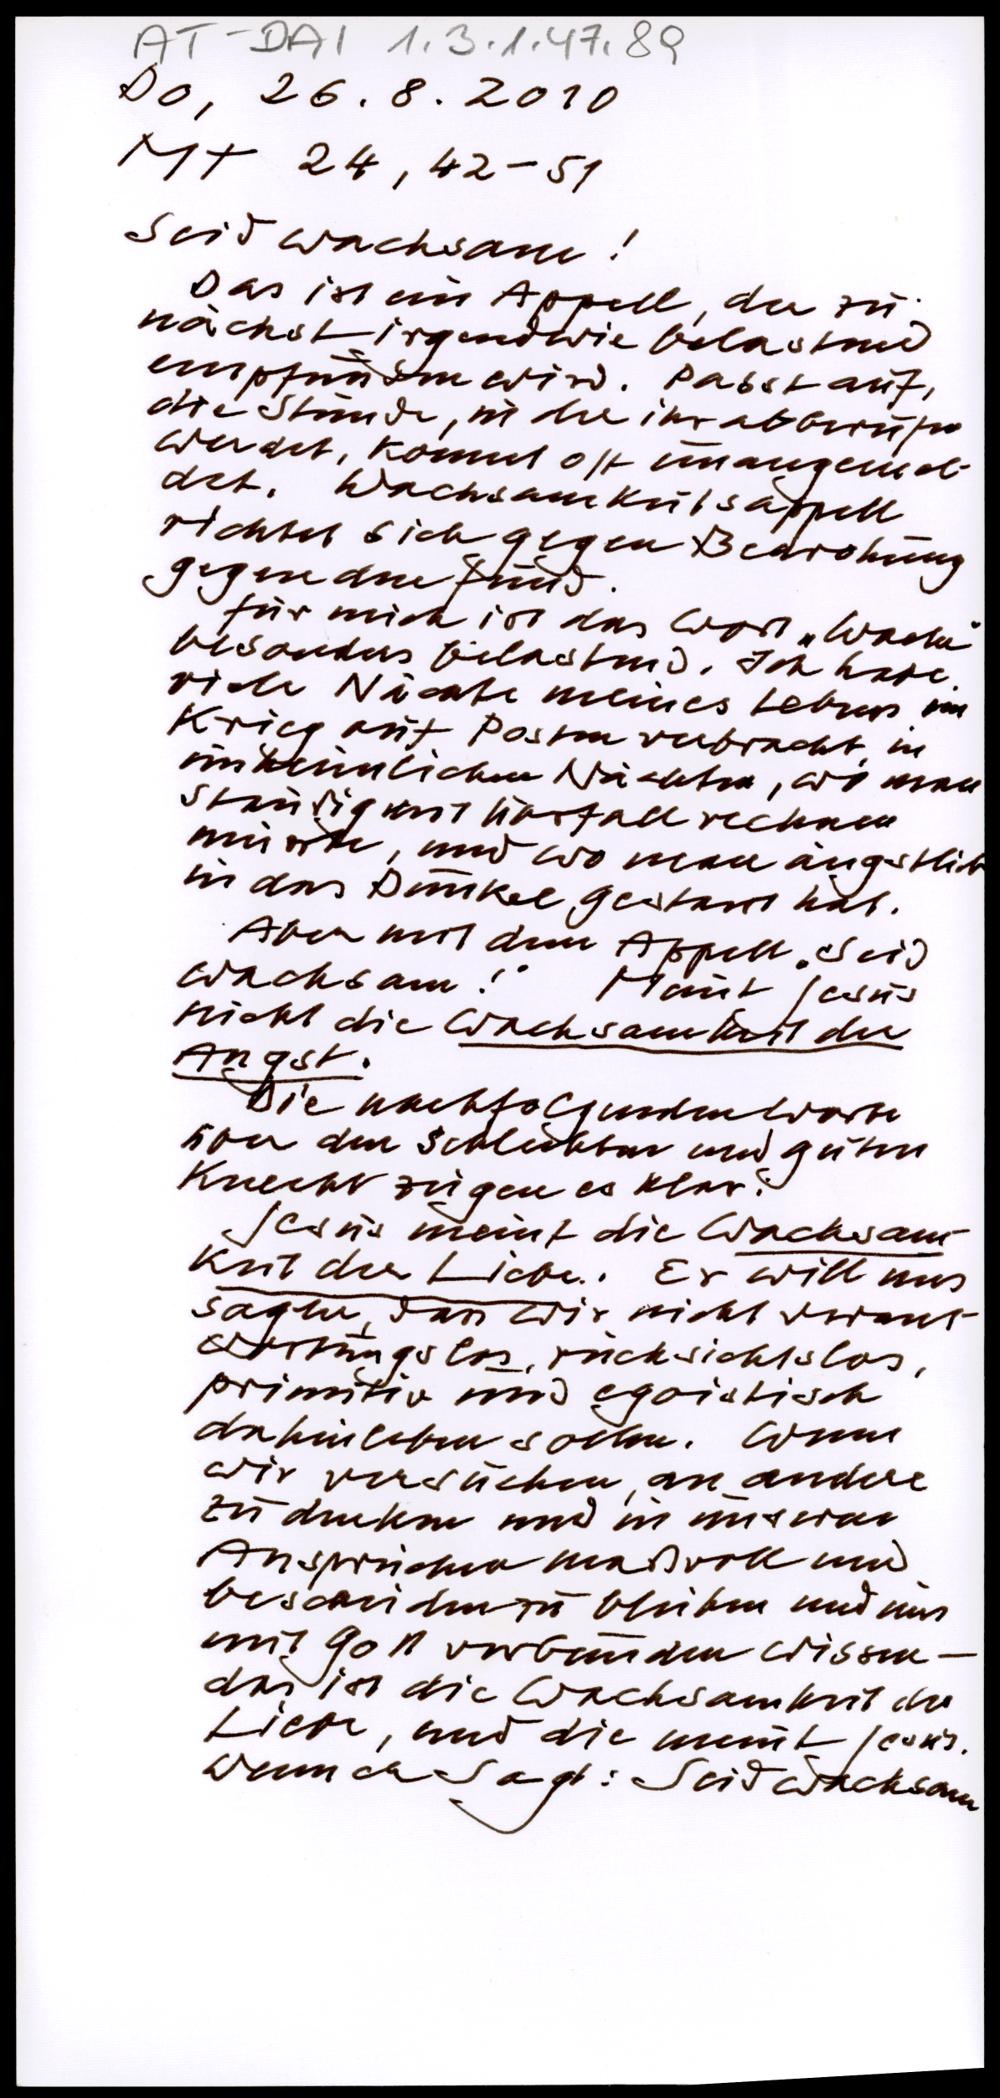 AT-DAI 1.3.1.47.89
Do, 26.8.2010
Mt 24, 42-51
Seid wachsam!
Das ist ein Appell, der zu-
nächst irgendwie belastend
empfunden wird. Passt auf,
die Stunde, in der ihr abberufen
werdet, kommt oft unangemel-
det. Wachsamkeitsappell
richtet sich gegen Bedrohung
gegen den Feind.
Für mich ist das Wort „Wache"
besonders belastend. Ich habe
viele Nächte meines Lebens im
Krieg auf Posten verbracht, in
unheimlichen Nächten, wo man
ständig mit Überfall rechnen
musste, und wo man ängstlich
in das Dunkel gestarrt hat.
Aber mit dem Appell „Seid
wachsam!" Meint Jesus
nicht die Wachsamkeit der
Angst.
Die nachfolgenden Worte
über den schlechten und guten
Knecht zeigen es klar.
Jesus meint die Wachsam-
keit der Liebe. Er will uns
sagen, dass wir nicht verant-
wortungslos, rücksichtslos,
primitiv und egoistisch
dahinleben sollen. Wenn
wir versuchen, an andere
zu denken und in unseren
Ansprüchen maßvoll und
bescheiden zu bleiben und uns
mit Gott verbunden wissen –
das ist die Wachsamkeit der
Liebe, und die meint Jesus.
Wenn er sagt: Seid wachsam